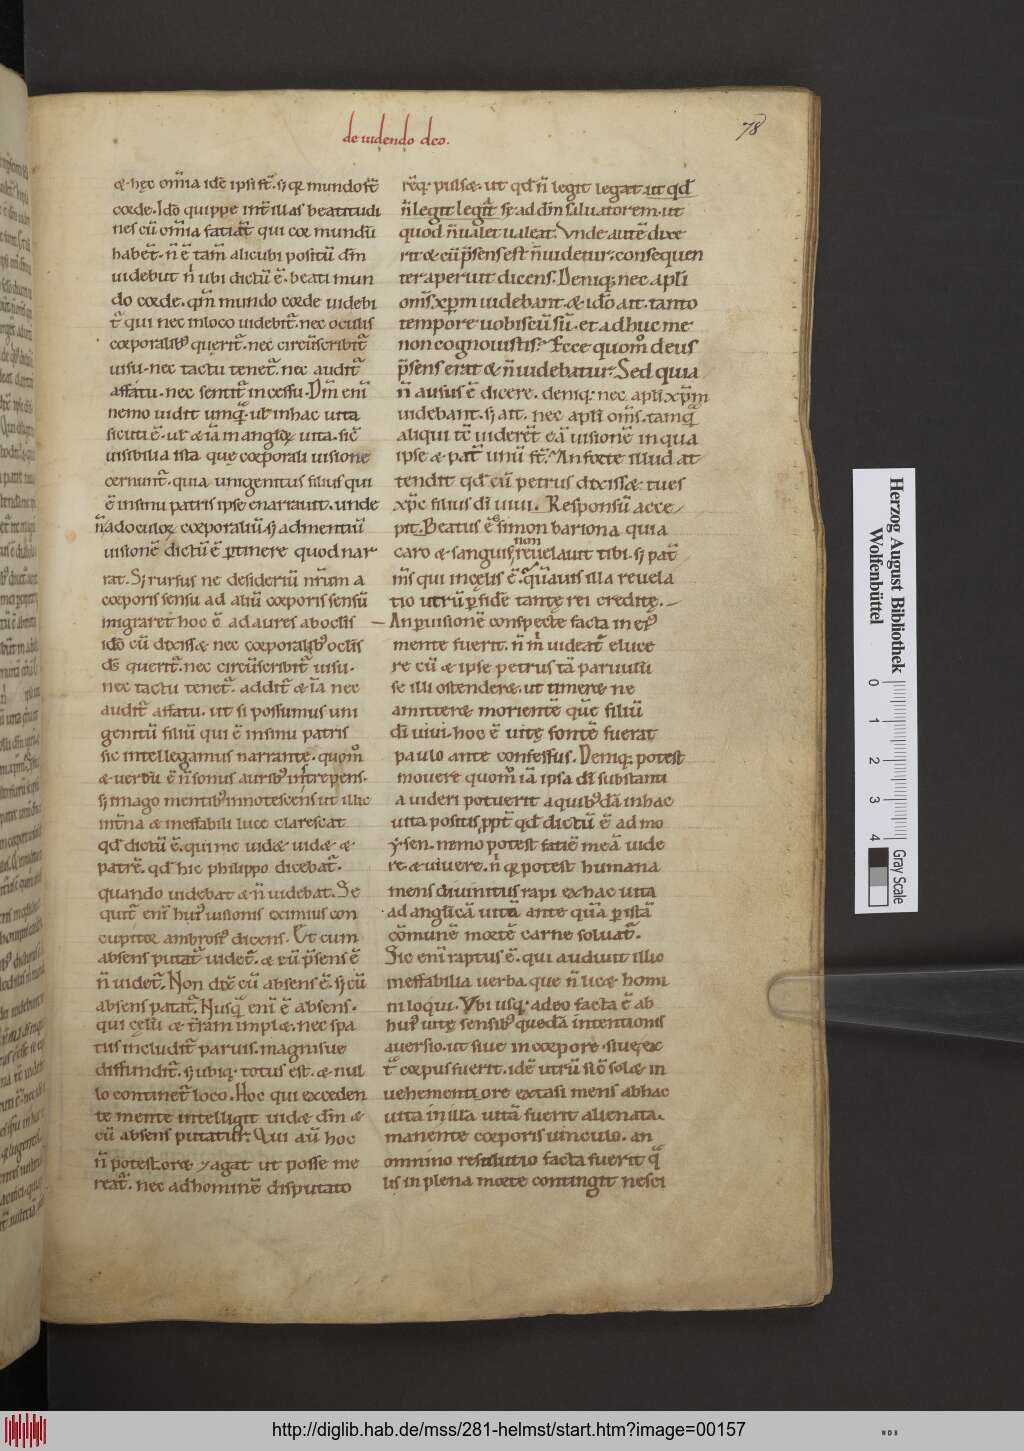 de uidendo deo.
78
& hęc om̄ia idē ipsi s̄t. sꝫ q̨ mundo s̄t
corde. Idō quippe int̄ illas beatitudi
nes cū om̄ia fatiat̄ qui cor mundū
habet. n̄ ē tam̄ alicubi positū dm̄
uidebut nˡ ubi dictū ē. beati mun
do corde. qm̄ mundo corde uidebi
t̄ qui nec in loco uidebit̄. nec oculis
corporalibꝰ querit̄. nec circūscribit̄
uisu. nec tactu tenet̄. nec audit̄
affatu. nec sentit̄ incessu. Dm̄ eni
nemo uidit umq̄. ul̄ in hac uita
sicuti ē. ul̄ & iā in anglꝝ uita. sic̄
uisibilia ista quę corporali uisione
cernunt̄. quia unigenitus filius qui
ē in sinu patris ipse enarrauit. unde
n̄ ad oculoꝝ corporaliū. sꝫ ad mentiū
uisionē dictū ē ꝑtinere quod nar
rat. Sꝫ rursus ne desideriū nr̄um a
corporis sensu ad aliū corporis sensū
migraret hoc ē ad aures ab oclis
idō cū dixiss& nec corporalibꝰ oclis
ds̄ querit̄. nec circūscribit̄ uisu.
nec tactu tenet̄. addit̄ & iā nec
audit̄ affatu. ut si possumus uni
genitū filiū qui ē in sinu patris
sic intellegamus narrantę. quom̊
& uerbū ē n̄ sonus auribꝰ intrepens.
sꝫ imago mentibꝰ innotescens ut illic
int̄na & ineffabili luce clarescat
qd̄ dictū ē. qui me uid& uid& &
patrē. qd̄ hic philippo dicebat̄.
quando uidebat & n̄ uidebat. Se
quit̄ eni huiꝰ uisionis eximius con
cupitor ambrosiꝰ dicens. Et cum
absens putat̄ uidet̄. & cū p̄sens ē
n̄ uidet̄. Non dix̄ cū absens ē. sꝫ cū
absens putat̄. Nusq̄ eni ē absens.
qui cęlū & t̄ram impl&. nec spa
tiis includit̄ paruis. magnisue
diffundit̄. sꝫ ubiqꝫ totus est. & nul
lo continet̄ loco. Hoc qui exceden
te mente intelligit uid& dm̄ &
cū absens putatur. Qui aū hoc
n̄ potest. or& & agat ut posse me
reat̄. nec ad hominē disputato
rē qꝫ puls&. ut qd̄ n̄ legit legat ut qd̄
n̄ legit legit̄ sꝫ ad dm̄ saluatorem. ut
quod n̄ ualet ualeat. Vnde autē dixe
rit & cū p̄sens est n̄ uidetur. consequen
ter aperuit dicens. Deniqꝫ nec apl̄i
om̄s xp̄m uidebant. & idō ait. tanto
tempore uobiscū sū. et adhuc me
non cognouistis? Ecce quom̊ deus
p̄sens erat & n̄ uidebatur. Sed quia
n̄ ausus ē dicere. deniqꝫ nec apl̄i xp̄m
uidebant. sꝫ ait. nec apl̄i om̄s. tamq̄
aliqui tc̄ uiderēt eā uisionē in qua
ipse & pat̄ unū s̄t. An forte illud at
tendit qd̄ cū petrus dixiss& tu es
xp̄c filius dī uiui. Responsū acce
pit. Beatus ē simon bariona quia
caro & sanguis non reuelauit tibi. sꝫ pat̄
m̄s qui in cęlis ē. quāuis illa reuela
tio utrū ꝑ fidē tantę rei creditę.
An ꝑ uisionē conspectę facta in eiꝰ
mente fuerit. n̄ mˡ uideat̄ eluce
re cū & ipse petrus tā paruulū
se illi ostender&. ut timer& ne
amitter& morientē quē filiū
dī uiui. hoc ē uitę fontē fuerat
paulo ante confessus. Deniqꝫ potest
mouere quom̊ iā ipsa dī substanti
a uideri potuerit a quibꝰdā in hac
uita positis. ꝓpt̄ qd̄ dictū ē ad mo
ysen. nemo potest faciē meā uide
re & uiuere. nˡ q̨ potest humana
mens diuinitus rapi ex hac uita
ad anglicā uitā ante quā ꝑ istā
cōmunē mortē carne soluat̄.
Sic eni raptus ē. qui audiuit illic
ineffabilia uerba. que n̄ lic& homi
ni loqui. Vbi usqꝫ adeo facta ē ab
huiꝰ uitę sensibꝰ quedā intentionis
auersio. ut siue in corpore. siue ex
t̄ corpus fuerit. idē utrū sic̄ sol& in
uehementiore extasi mens ab hac
uita in illa uitā fuerit alienata.
manente corporis uinculo. an
omnino resolutio facta fuerit q̄
lis in plena morte contingit nesci
Herzog August Bibliothek
Wolfenbüttel
0 1 2 3 4
Gray Scale
http://diglib.hab.de/mss/281-helmst/start.htm?image=00157